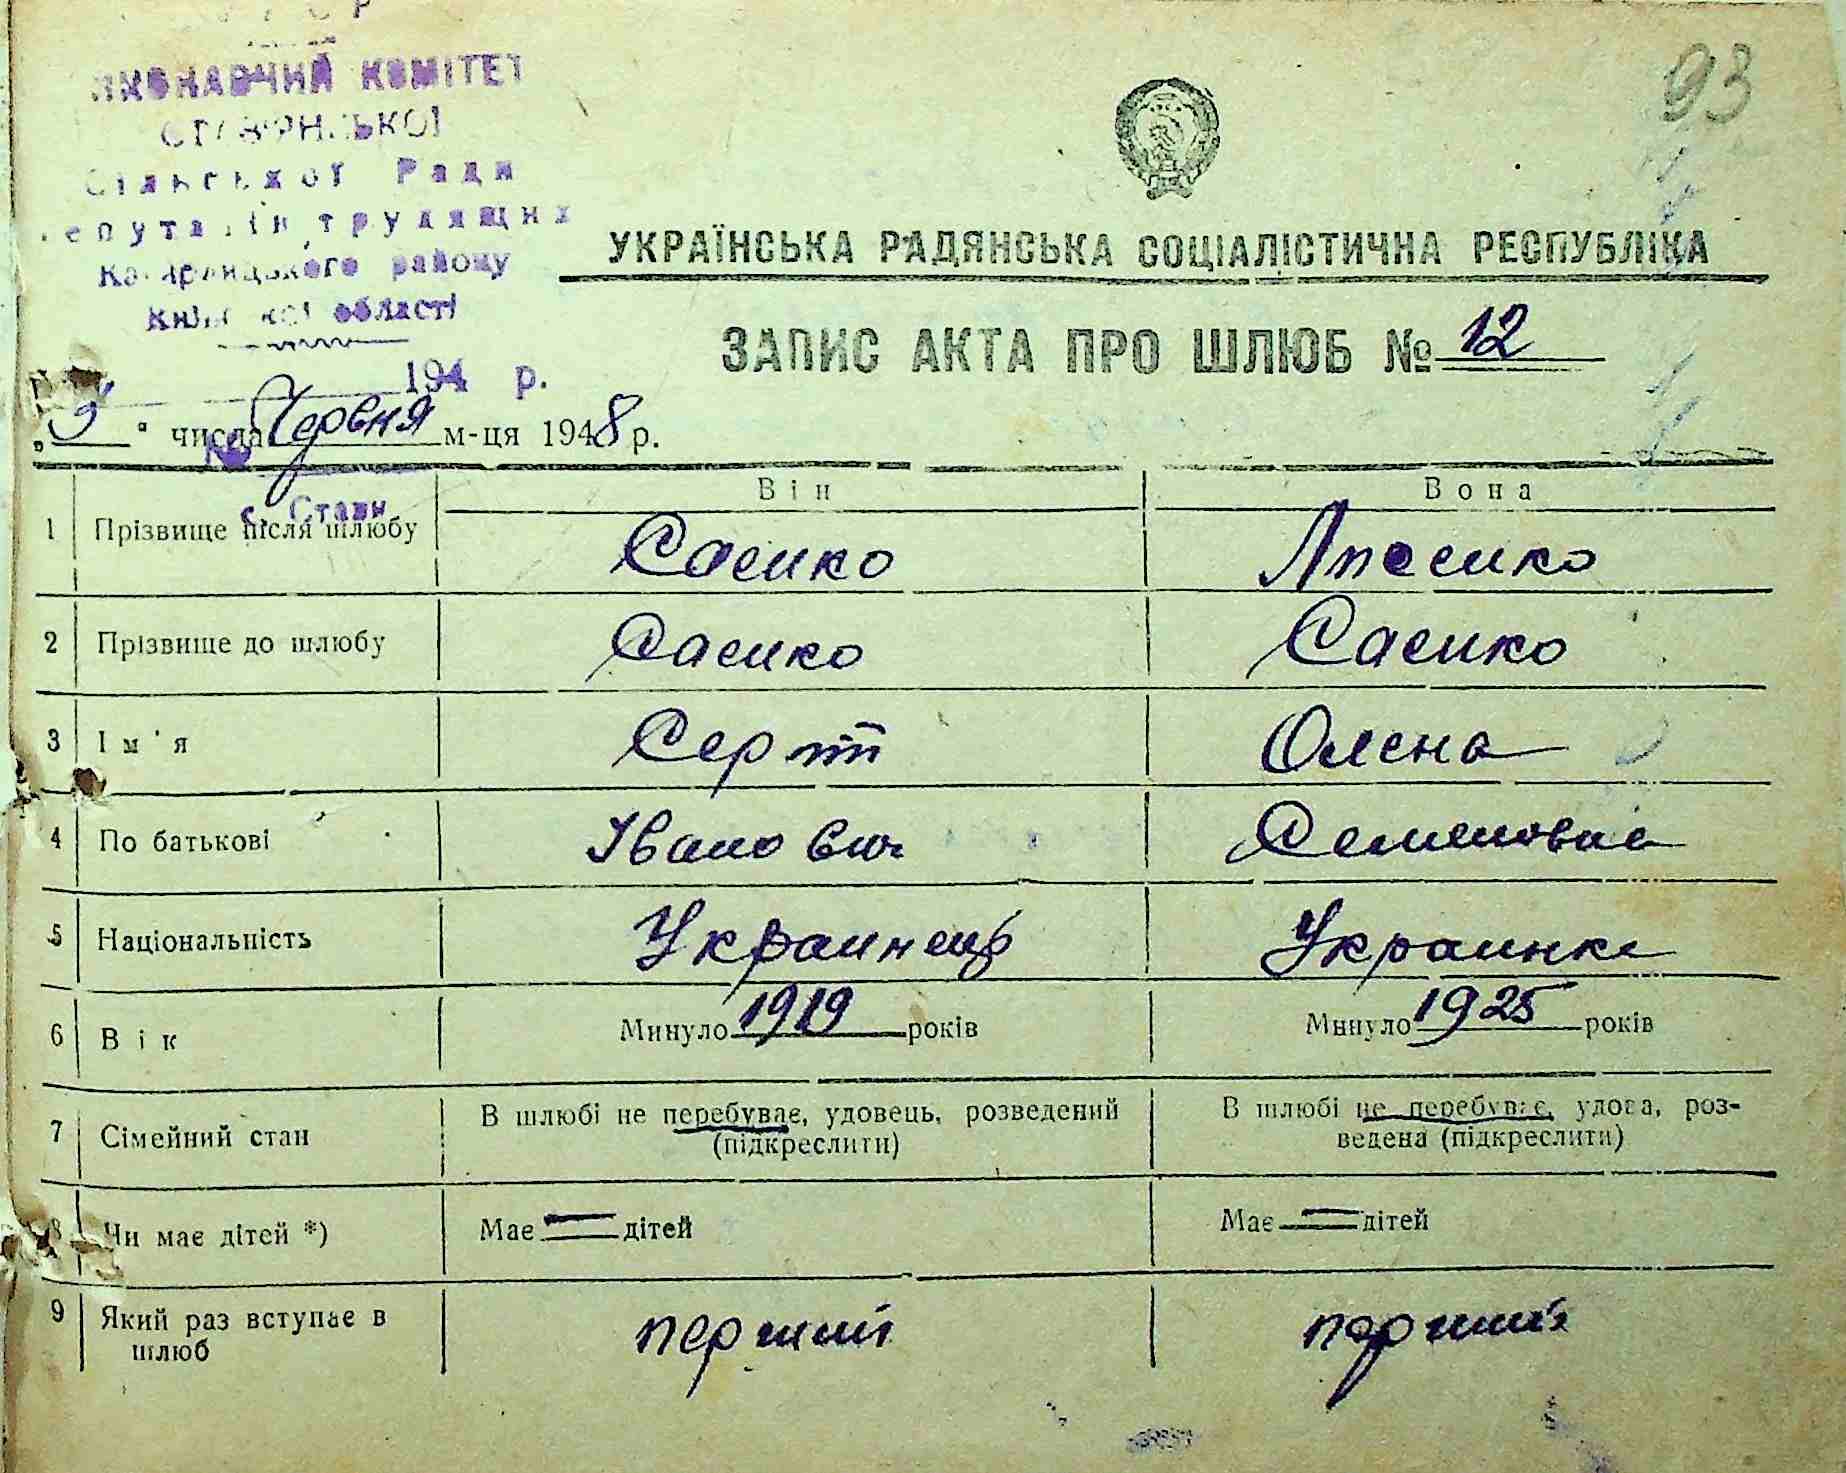 93
КОМІТЕТ
Сільської Ради
депутатів трудящих
Кагарлицького району
Київської області
194 р.
УКРАЇНСЬКА РАДЯНСЬКА СОЦІАЛІСТИЧНА РЕСПУБЛІКА
ЗАПИС АКТА ПРО ШЛЮБ № 12
„5“ числа Червня м-ця 1948 р.
№
с. Стави
Він Вона
1 Прізвище після шлюбу Саенко
2 Прізвище до шлюбу Саенко Саенко
3 Ім'я Сергій Олена
4 По батькові Іванович Семеновна
5 Національність Украинець Украинка
6 Вік Минуло 1919 років Минуло 1925 років
7 Сімейний стан В шлюбі не перебуває, удовець, розведений (підкреслити) В шлюбі не перебуває, удова, роз-
ведена (підкреслити)
8 Чи має дітей *) Має — дітей Має — дітей
9 Який раз вступає в шлюб перший перший